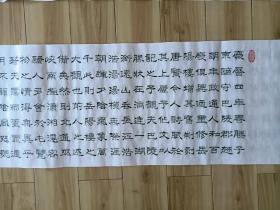 慶曆四年春滕子
京謫守巴陵郡越
明年政通人和百
廢俱興乃重修岳
陽樓增其舊制刻
唐賢今人詩賦於
其上屬予作文以
記之予觀夫巴陵
勝狀在洞庭一湖
銜遠山吞長江浩
浩湯湯橫無際涯
朝暉夕陰氣象萬
千此則岳陽樓之
大觀也前人之述
備矣然則北通巫
峽南極瀟湘遷客
騷人多會於此覽
物之情得無異乎
若夫霪雨霏霏連
月不開陰風怒號